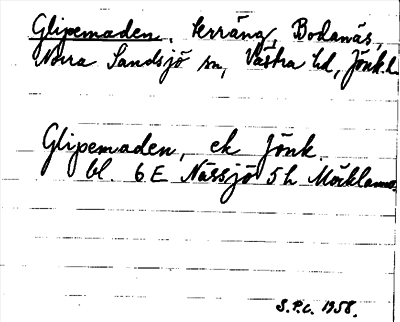 Glipemaden, terräng, Bodanäs,
Norra Sandsjö sn, Västra hd, Jönk.l.
Glipemaden, ek Jönk.
bl. 6E Nässjö 5h
S.P.C. 1958.